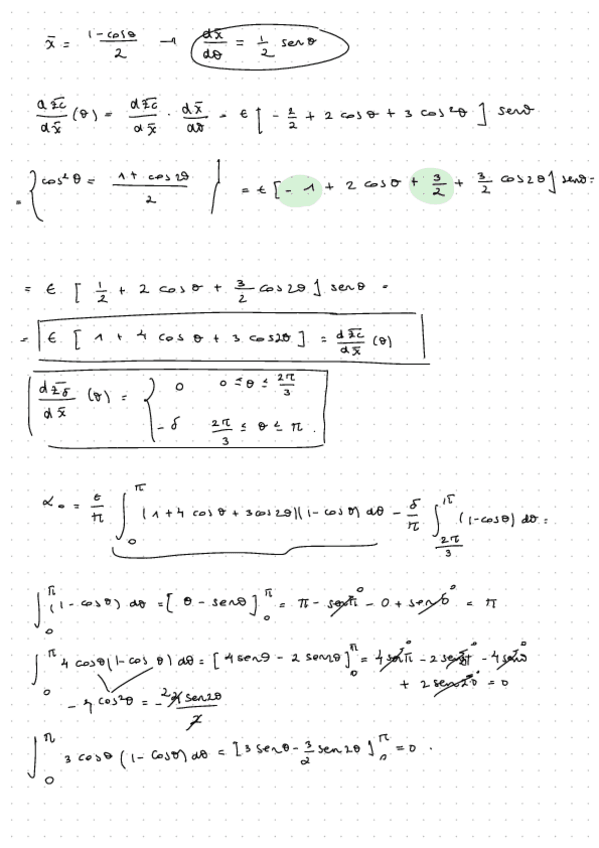 x̄ = (1-cosθ)/2 → dx̄/dθ = 1/2 senθ
dz̄c/dx̄ (θ) = dz̄c/dx̄ · dx̄/dθ = ϵ [ - 2/2 + 2 cosθ + 3 cos²θ ] senθ
= { cos²θ = (1 + cos2θ)/2 } = ϵ [ - 1 + 2 cosθ + 3/2 + 3/2 cos2θ ] senθ =
= ϵ [ 1/2 + 2 cosθ + 3/2 cos2θ ] senθ =
= ϵ [ 1 + 4 cosθ + 3 cos2θ ] = dz̄c/dx̄ (θ)
dz̄δ/dx̄ (θ) = { 0 0 ≤ θ ≤ 2π/3
- δ 2π/3 ≤ θ ≤ π .
α₀ = ϵ/π ∫₀^π (1 + 4 cosθ + 3 cos2θ)(1-cosθ) dθ - δ/π ∫_{2π/3}^π (1-cosθ) dθ =
∫₀^π (1-cosθ) dθ = [ θ - senθ ]₀^π = π - senπ⁰ - 0 + sen0⁰ = π
∫₀^π 4 cosθ (1-cosθ) dθ = [ 4 senθ - 2 sen2θ ]₀^π = 4 senπ⁰ - 2 sen2π⁰ - 4 sen0⁰
+ 2 sen2·0⁰ = 0
- 4 cos²θ = - 2 4 sen2θ / 2
∫₀^π 3 cosθ (1- cosθ) dθ = [ 3 senθ - 3/2 sen2θ ]₀^π = 0 .